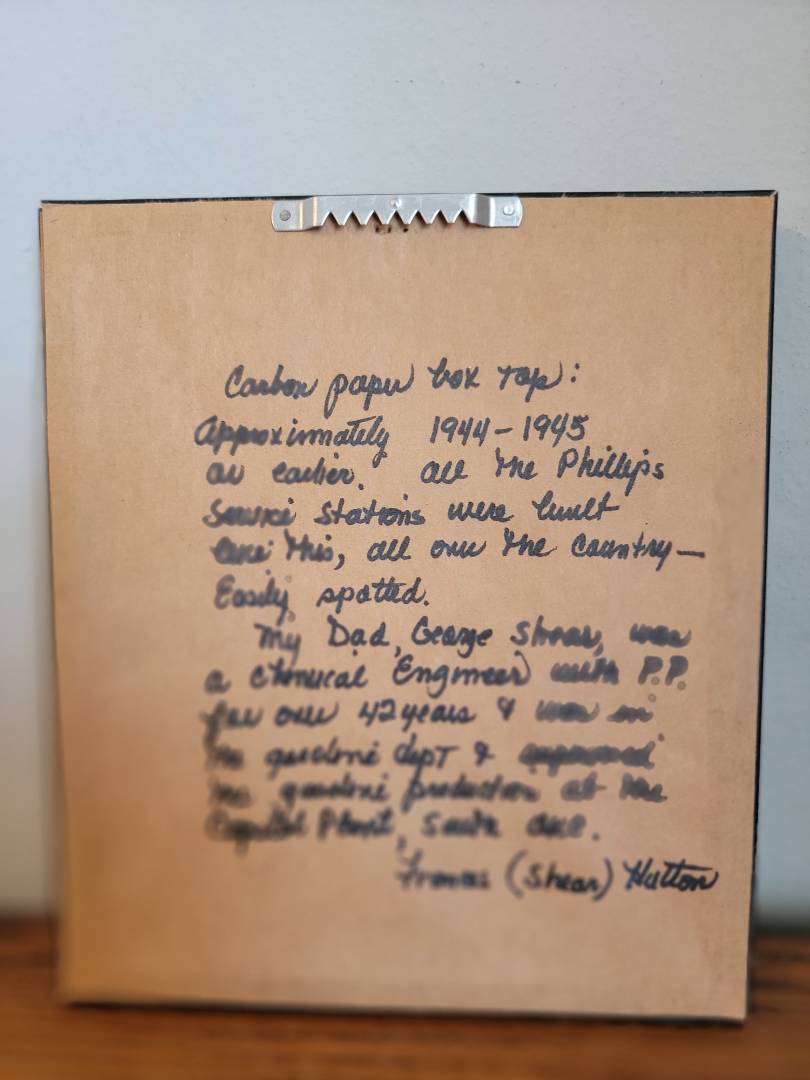 Carbon paper box top:
Approximately 1944-1945
or earlier. All the Phillips
Service Stations were built
like this, all over the country—
Easily spotted.
My Dad, George Shear, was
a Chemical Engineer with P.P.
for over 42 years & was in
the gasoline dept &
the gasoline production at the
Plant,
(Shear) Hutton